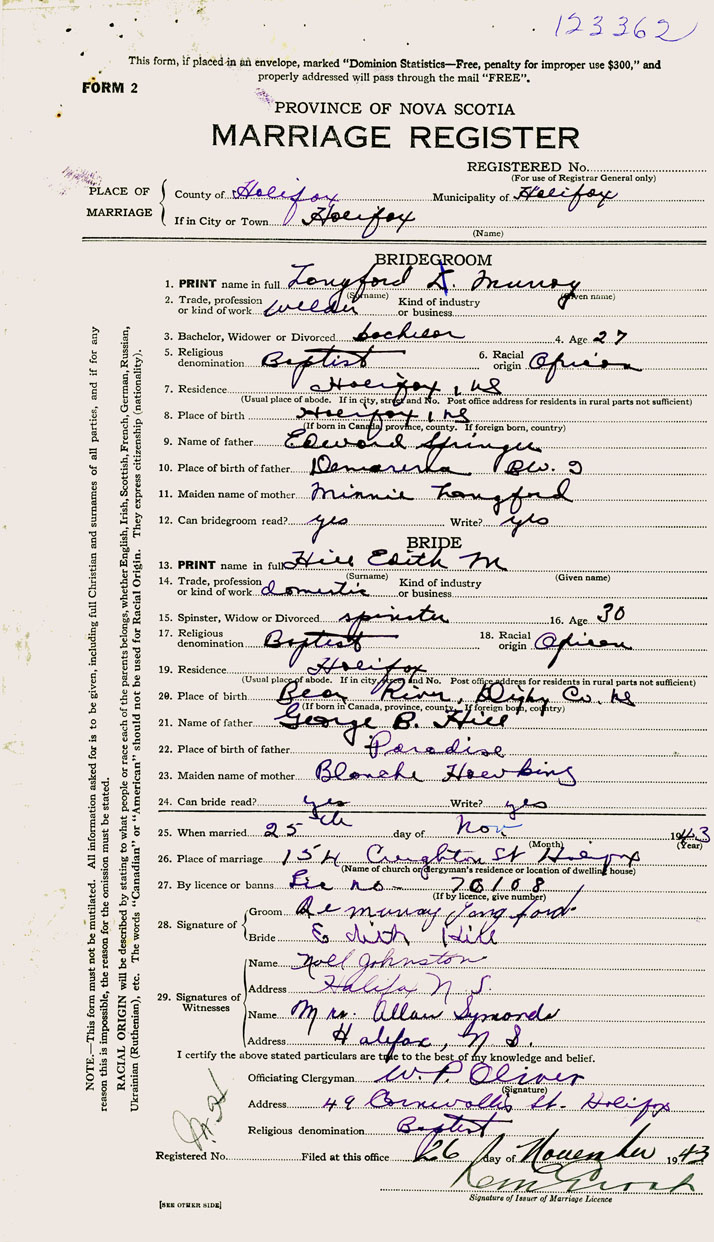 123362
This form, if placed in an envelope, marked "Dominion Statistics—Free, penalty for improper use $300," and
properly addressed will pass through the mail "FREE".
FORM 2
PROVINCE OF NOVA SCOTIA
MARRIAGE REGISTER
REGISTERED No.
(For use of Registrar General only)
PLACE OF MARRIAGE
County of Halifax Municipality of Halifax
If in City or Town Halifax
(Name)
BRIDEGROOM
1. PRINT name in full Langford D. Murray
(Surname) (Given name)
2. Trade, profession or kind of work welder Kind of industry or business
3. Bachelor, Widower or Divorced bachelor 4. Age 27
5. Religious denomination Baptist 6. Racial origin African
7. Residence Halifax, NS
(Usual place of abode. If in city, street and No. Post office address for residents in rural parts not sufficient)
8. Place of birth Halifax, NS
(If born in Canada, province, county. If foreign born, country)
9. Name of father Edward Springer
10. Place of birth of father BW. I
11. Maiden name of mother Minnie Langford
12. Can bridegroom read? yes Write? yes
BRIDE
13. PRINT name in full Hill Edith M
(Surname) (Given name)
14. Trade, profession or kind of work domestic Kind of industry or business
15. Spinster, Widow or Divorced spinster 16. Age 30
17. Religious denomination Baptist 18. Racial origin African
19. Residence Halifax
(Usual place of abode. If in city, street and No. Post office address for residents in rural parts not sufficient)
20. Place of birth Bear River, Digby Co. NS
(If born in Canada, province, county. If foreign born, country)
21. Name of father George B. Hill
22. Place of birth of father Paradise
23. Maiden name of mother Blanche
24. Can bride read? yes Write? yes
25. When married 25th day of Nov 1943
(Month) (Year)
26. Place of marriage 154 Creighton St Halifax
(Name of church or clergyman's residence or location of dwelling house)
27. By licence or banns Lic no- 70108
(If by licence, give number)
28. Signature of
Groom Murray Langford
Bride Edith Hill
29. Signatures of Witnesses
Name Noel Johnston
Address Halifax N. S.
Name Mrs. Allan Symonds
Address Halifax, N. S.
I certify the above stated particulars are true to the best of my knowledge and belief.
Officiating Clergyman W. P. Oliver
(Signature)
Address 49 Cornwallis St. Halifax
Religious denomination Baptist
Registered No. Filed at this office 26 day of November 1943
Signature of Issuer of Marriage Licence
[SEE OTHER SIDE]
NOTE.—This form must not be mutilated. All information asked for is to be given, including full Christian and surnames of all parties, and if for any
reason this is impossible, the reason for the omission must be stated.
RACIAL ORIGIN will be described by stating to what people or race each of the parents belongs, whether English, Irish, Scottish, French, German, Russian,
Ukrainian (Ruthenian), etc. The words "Canadian" or "American" should not be used for Racial Origin. They express citizenship (nationality).